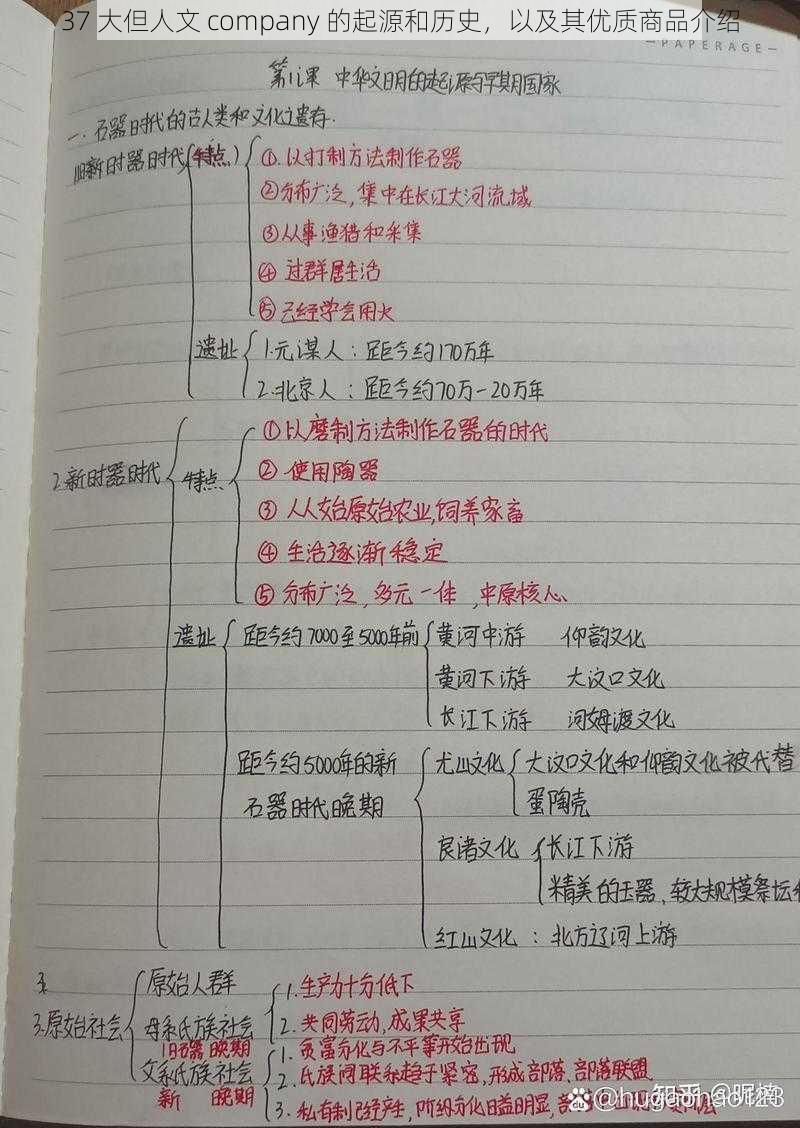 37 大但人文 company 的起源和历史，以及其优质商品介绍
—PAPERAGE—
第1课 中华文明的起源与早期国家
一. 石器时代的古人类和文化遗存.
旧新时器时代(特点)
①. 以打制方法制作石器
②分布广泛, 集中在长江大河流域
③从事渔猎和采集
④ 过群居生活
⑤ 已经学会用火
遗址
1.元谋人：距今约170万年
2.北京人：距今约70万-20万年
2.新时器时代
特点
①以磨制方法制作石器的时代
② 使用陶器
③ 人从始原始农业,饲养家畜
④ 生活逐渐稳定
⑤ 分布广泛, 多元一体, 中原核心、
遗址
距今约7000至5000年前
黄河中游 仰韵文化
黄河下游 大汶口文化
长江下游 河姆渡文化
距今约5000年的新
石器时代晚期
尤山文化
大汶口文化和仰韵文化被代替
蛋陶壳
良渚文化
长江下游
精美的玉器、较大规模祭坛
红山文化：北方辽河上游
3.原始社会
原始人群
母系氏族社会
旧石器晚期
1.生产力十分低下
2.共同劳动,成果共享
父系氏族社会
新 晚期
1.贫富分化与不平等开始出现
2.氏族间联系趋于紧密,形成部落、部落联盟.
3.私有制已经产生,阶级分化日益明显,
知乎 @昵楠
@hugaohao123